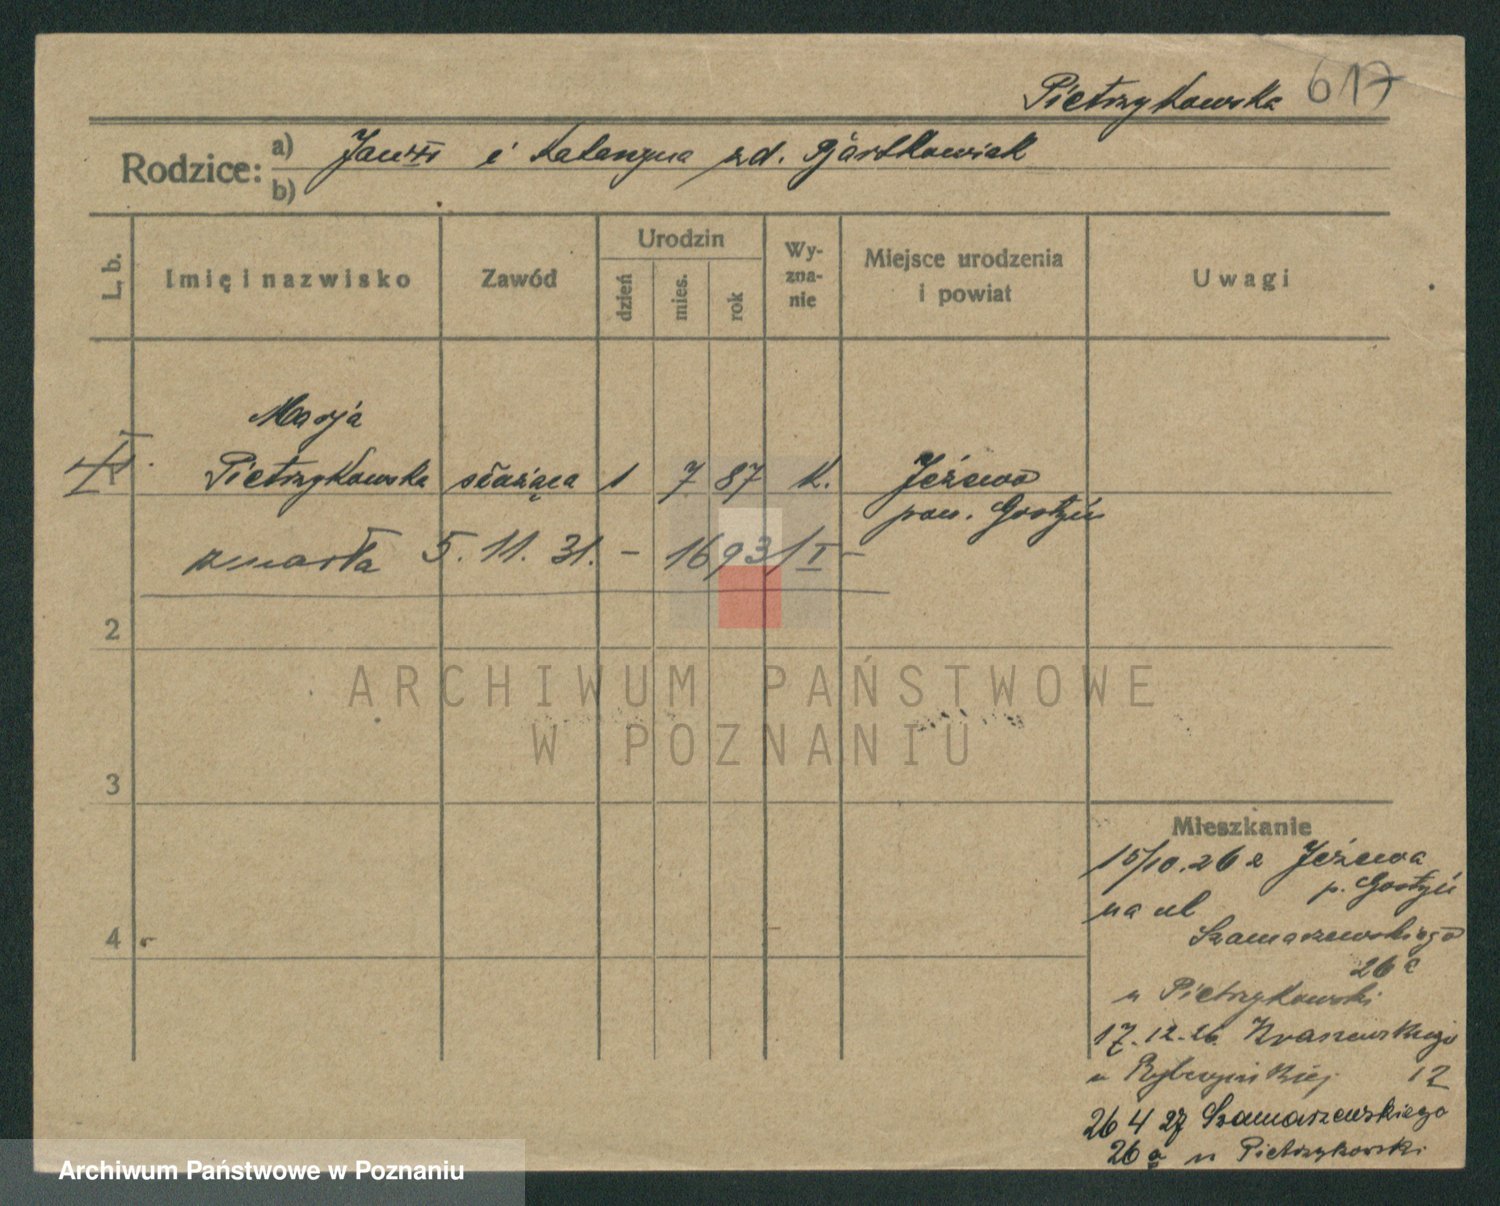 Pietrzykowska 617
Rodzice: a) Jan †† i Katarzyna zd. Bartkowiak
b)
L. b.
Imię i nazwisko
Zawód
Urodzin
dzień
mies.
rok
Wy-
zna-
nie
Miejsce urodzenia
i powiat
Uwagi
Marja
Pietrzykowska służąca 1 7 87 k. Jeżewo
pow. Gostyń
zmarła 5. 11. 31. – 1693/I –
2
3
4
Mieszkanie
15/10.26 z Jeżewa
p. Gostyń
na ul
Szamarzewskiego
26a
u Pietrzykowski
17.12.26. Kraszewskiego
u Rybczyńskiej 12
26 4 27 Szamarzewskiego
26a u Pietrzykowski
ARCHIWUM PAŃSTWOWE
W POZNANIU
Archiwum Państwowe w Poznaniu